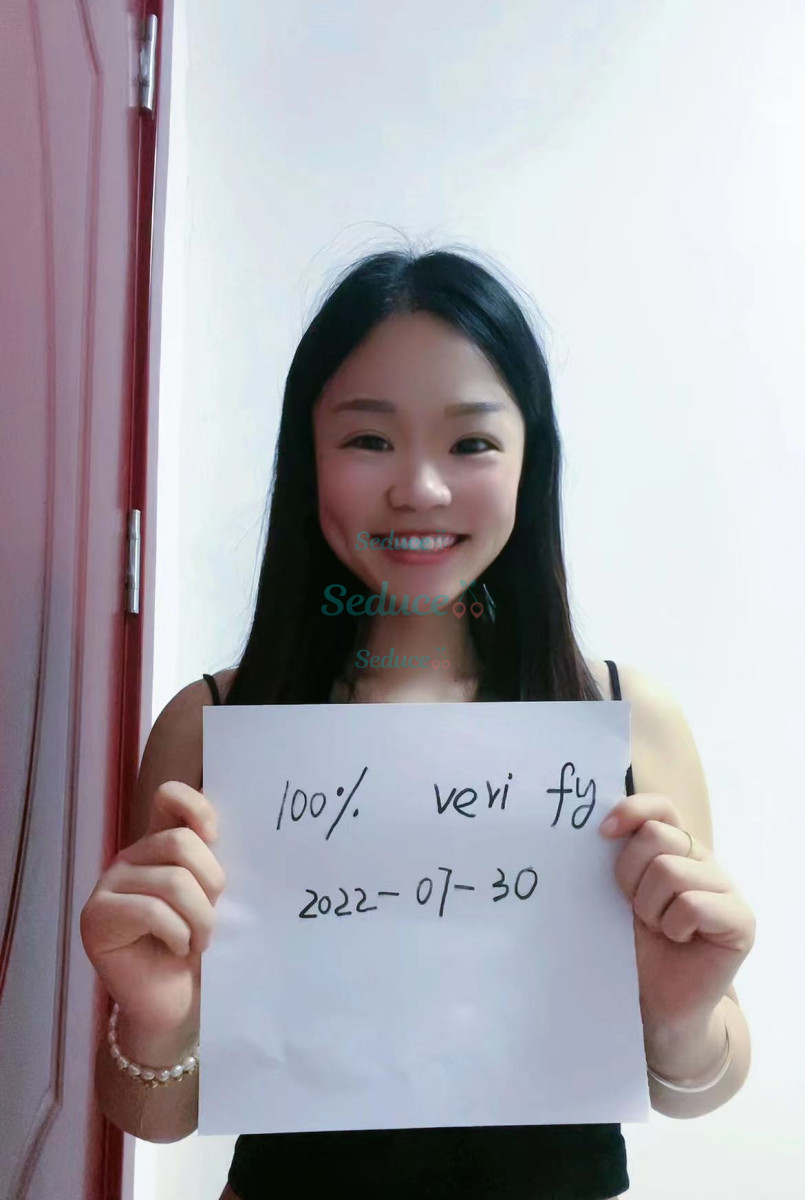 Seduce
Seduce
Seduce
100% verify
2022-07-30